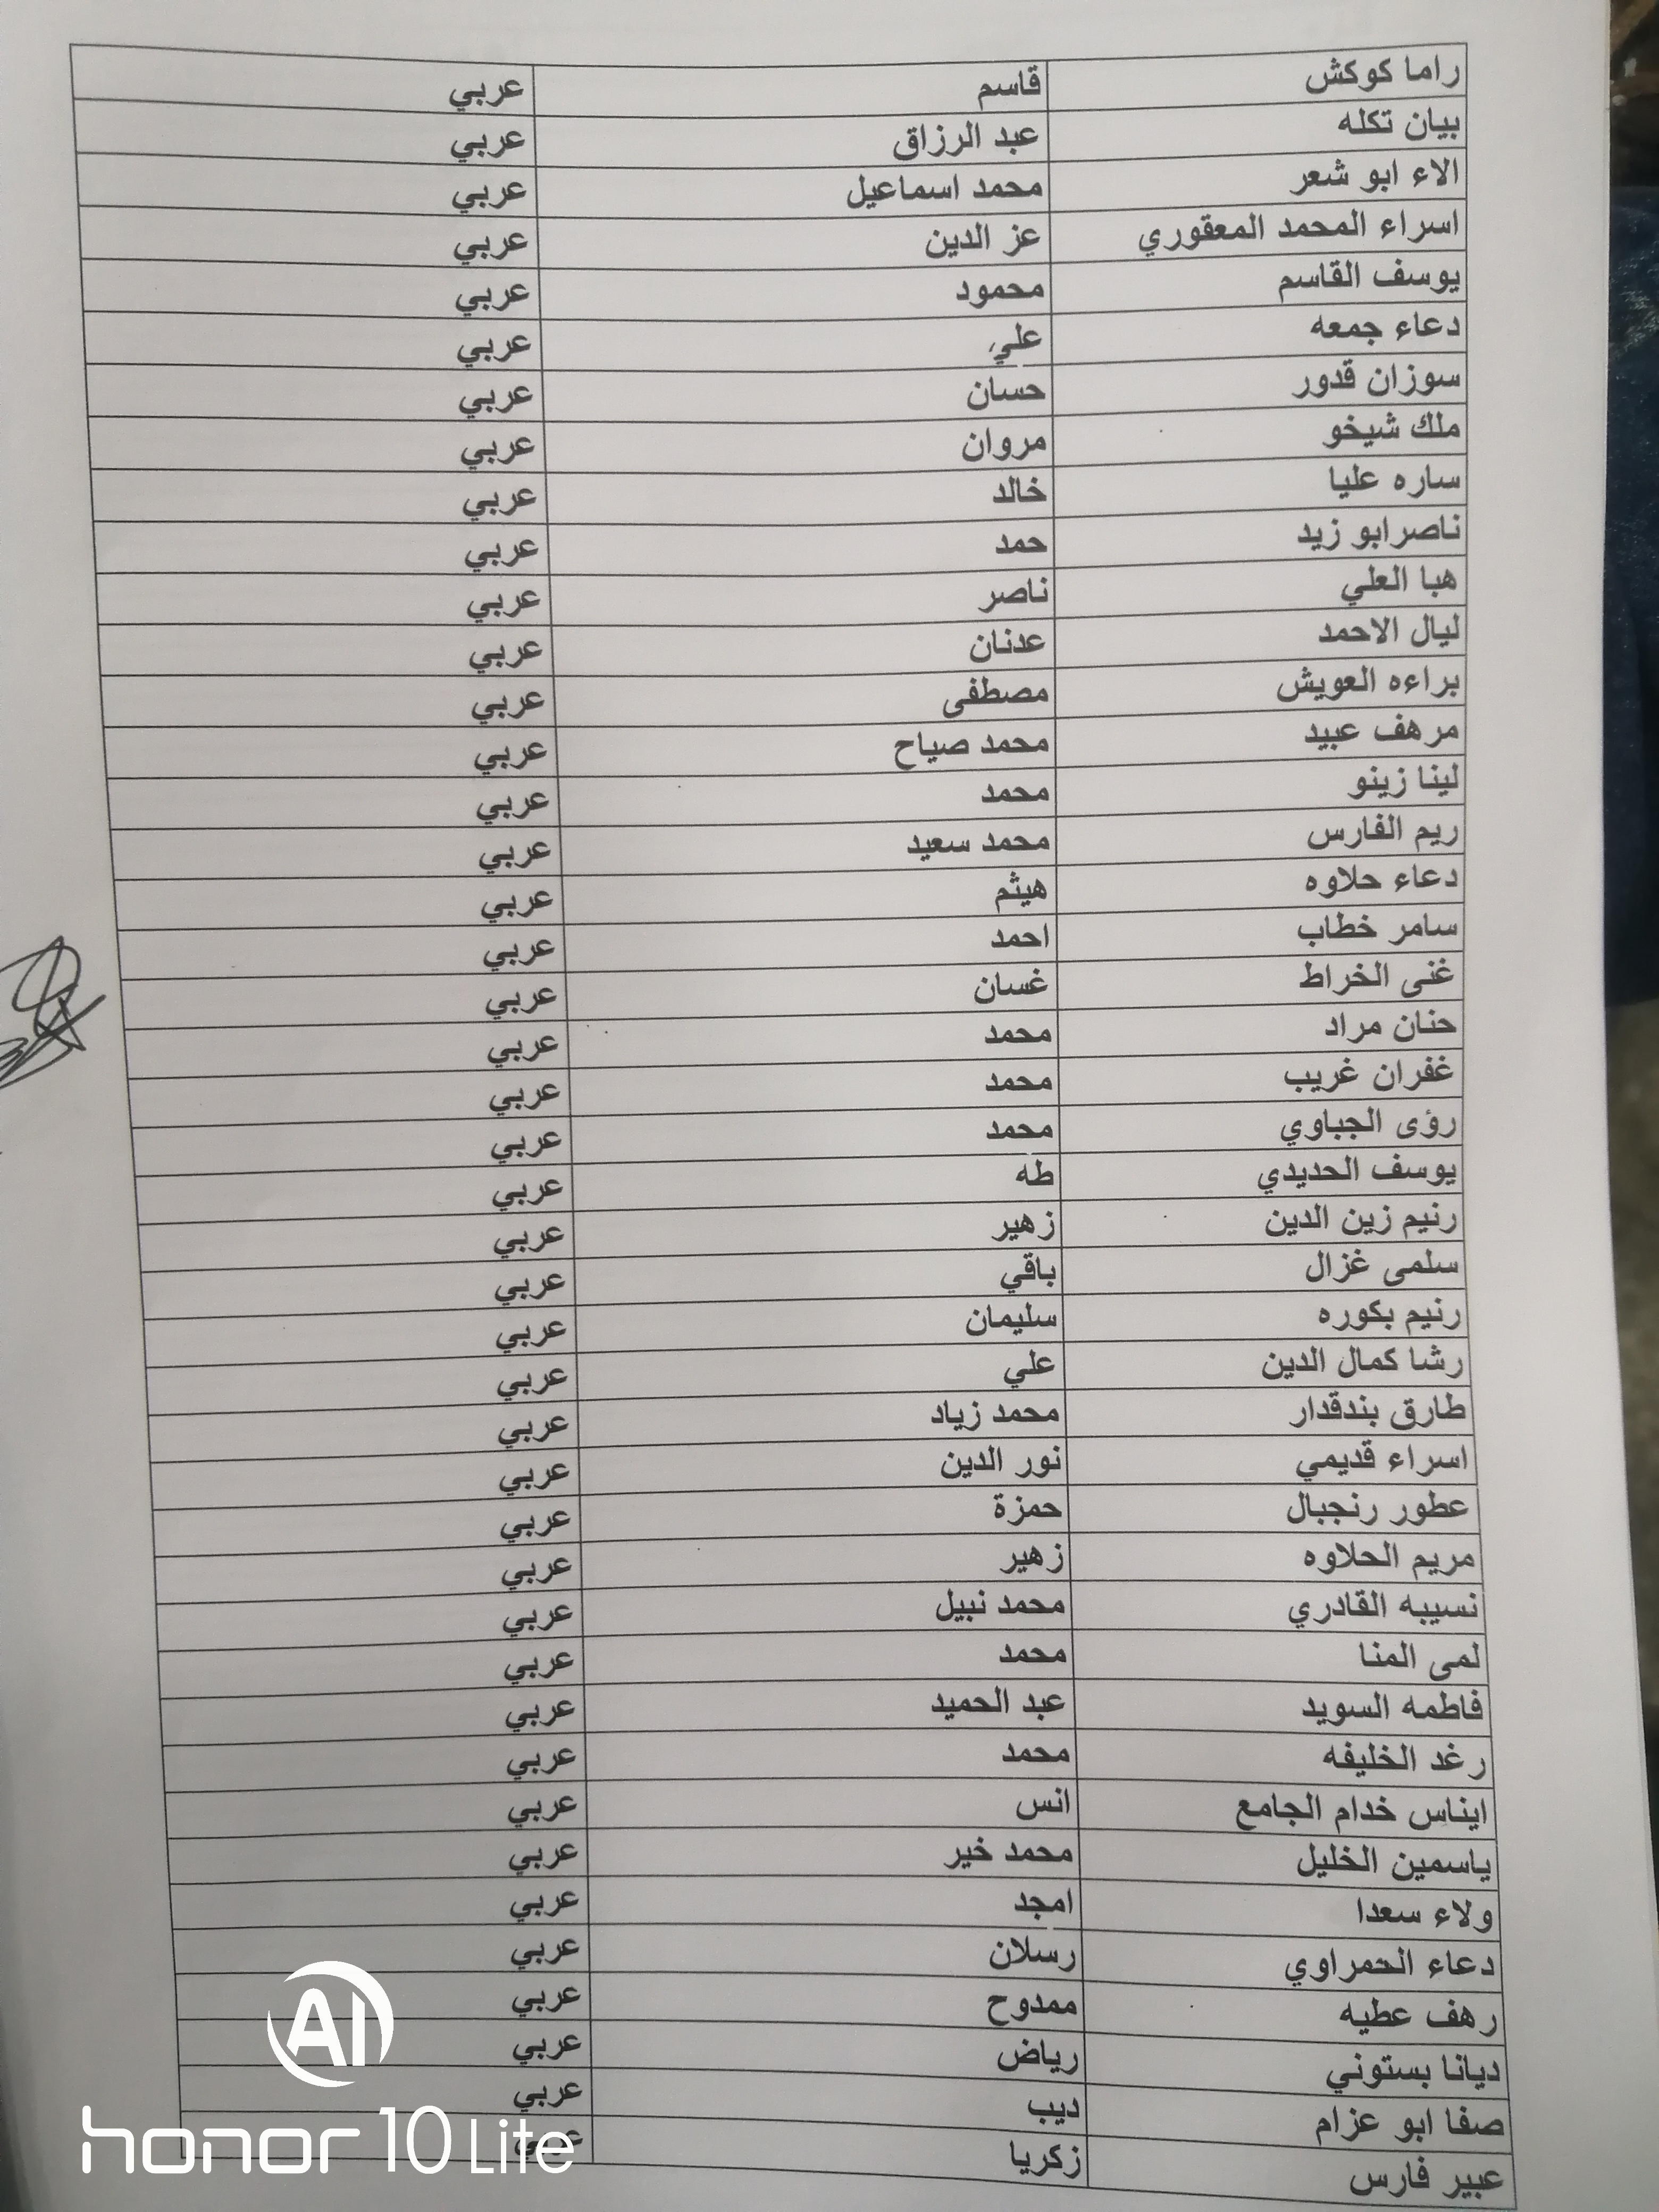 راما كوكش قاسم عربي
بيان تكله عبد الرزاق عربي
الاء ابو شعر محمد اسماعيل عربي
اسراء المحمد المعقوري عز الدين عربي
يوسف القاسم محمود عربي
دعاء جمعه علي عربي
سوزان قدور حسان عربي
ملك شيخو مروان عربي
ساره عليا خالد عربي
ناصرابو زيد حمد عربي
هبا العلي ناصر عربي
ليال الاحمد عدنان عربي
براءه العويش مصطفى عربي
مرهف عبيد محمد صياح عربي
لينا زينو محمد عربي
ريم الفارس محمد سعيد عربي
دعاء حلاوه هيثم عربي
سامر خطاب احمد عربي
غنى الخراط غسان عربي
حنان مراد محمد عربي
غفران غريب محمد عربي
رؤى الجباوي محمد عربي
يوسف الحديدي طه عربي
رنيم زين الدين زهير عربي
سلمى غزال باقي عربي
رنيم بكوره سليمان عربي
رشا كمال الدين علي عربي
طارق بندقدار محمد زياد عربي
اسراء قديمي نور الدين عربي
عطور رنجبال حمزة عربي
مريم الحلاوه زهير عربي
نسيبه القادري محمد نبيل عربي
لمى المنا محمد عربي
فاطمه السويد عبد الحميد عربي
رغد الخليفه محمد عربي
ايناس خدام الجامع انس عربي
ياسمين الخليل محمد خير عربي
ولاء سعدا امجد عربي
دعاء الحمراوي رسلان عربي
رهف عطيه ممدوح عربي
ديانا بستوني رياض عربي
صفا ابو عزام ديب عربي
عبير فارس زكريا عربي
AI
honor 10 Lite